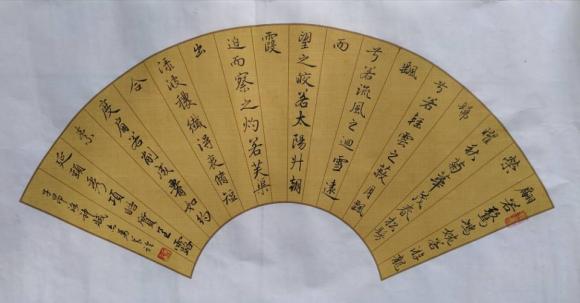 翩若驚鴻婉若游龍
榮
曜秋菊華茂春松髣
髴
兮若輕雲之蔽月飄
飖
兮若流風之迴雪遠
而
望之皎若太陽升朝
霞
迫而察之灼若芙蕖
出
淥波穠纖得衷脩短
合
度肩若削成腰如約
素
延頸秀項皓質呈露
子昂洛神賦